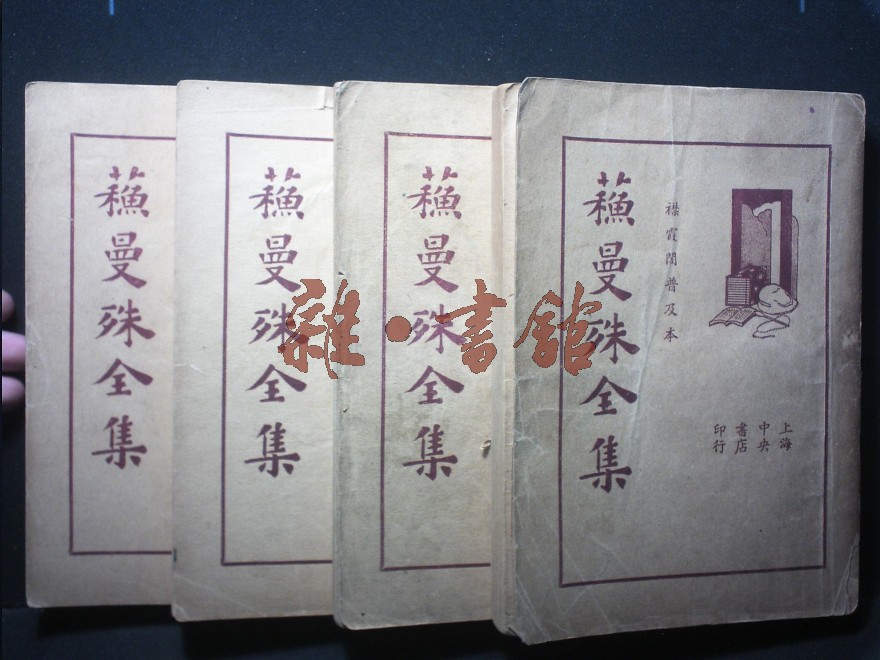 蘓曼殊全集
蘓曼殊全集
蘓曼殊全集
蘓曼殊全集
襟霞閣普及本
上海
中央
書店
印行
雜·書館